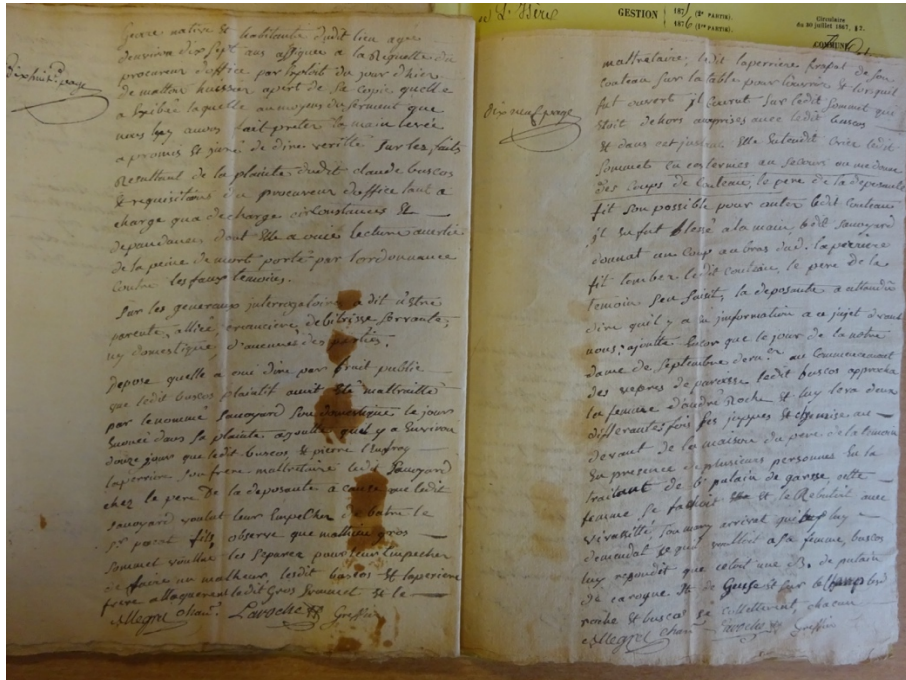 dix huit.e page
pierre native et habitante dudit lieu agée
denviron dix sept ans assignée a la Requette du
procureur doffice par Exploit du jour d'hier
de mattoir huissier apert de sa copie quelle
a Exibée laquelle au moyen du serment que
nous luy avons fait prêter la main levée
a promis et juré de dire verité sur les faits
Resultant de la plainte dudit claude buscos
Et requisitoire du procureur doffice tant a
charge qua decharge circonstances Et
dependances dont Elle a ouie lecture avertie
de la peine de mort porté par lordonnance
Contre les faux temoins.
Sur les generaux interrogatoires a dit n'estre
parente, alliée creanciere debitrisse servante,
ny domestique d'aucunes des parties.
Depose quelle a oui dire par bruit public
que ledit buscos plaintif avoit été maltraitté
par le nommé sauvoyard son domestique le jour
Enoncé dans sa plainte ajoutte quil y a Environ
douze jours que ledit buscos, et pierre
laperriere son frere maltraitaire ledit Sauvoyard
chez le pere De la deposante a cause que ledit
sauvoyard vouloit leur Empecher de batre le
sr fils, observe que mathieu gros
sommet voullut les separer pour leur Empecher
de faire un malheur, lesdit buscos Et laperiere
frere attaquerent ledit Gros Sommet et le
Allegret chan. Laroche Greffier
GESTION 187 (2e PARTIE).
187 (1re PARTIE).
Circulaire
du 30 juillet 1867, § 2.
COMMUNE
dix neuf page
maltraitaire, ledit laperriere son
Couteau sur la table pour l'ouvrir Et lorsquil
fut ouvert jl Courut sur ledit Sommet qui
Etoit dehors auxprises avec ledit buscos
Et dans cet instant Elle Entendit crier ledit
Sommet, En ces termes au Secour on me donne
des Coups de Couteau, le pere de la deposante
fit son possible pour outer ledit Couteau
jl se fut blessé a la main, ledit sauvoyard
donnat un Coup au bras dud. laperriere
fit tomber ledit couteau, le pere de la
temoin sen saisit, la deposante a
dire quil y a information a ce sujet devant
nous; ajoutte Encor que le jour de la notre
dame de septembre dern.er au Commencement
des vepres de paroisse ledit buscos approcha
la femme d'andré Roche Et luy leva deux
differantes fois ses juppes Et chemise au
devant de la maison du pere de la temoin
En presence de plusieurs personnes En la
traitant de de garse, cette
femme se fachoit Et le Rebutoit avec
vivacité, son mary arrivat qui luy
demandat ce quil voulloit a sa femme, buscos
luy repondit que cetoit une B. de putain
de caroque Et de Gueuse
roche Et buscos se colletterent, chacun
Allegret chan. Laroche Greffier